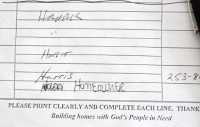 HARRIS
"
HURST
Harris
HOMEOWNER 253-8
PLEASE PRINT CLEARLY AND COMPLETE EACH LINE. THANK
Building homes with God's People in Need